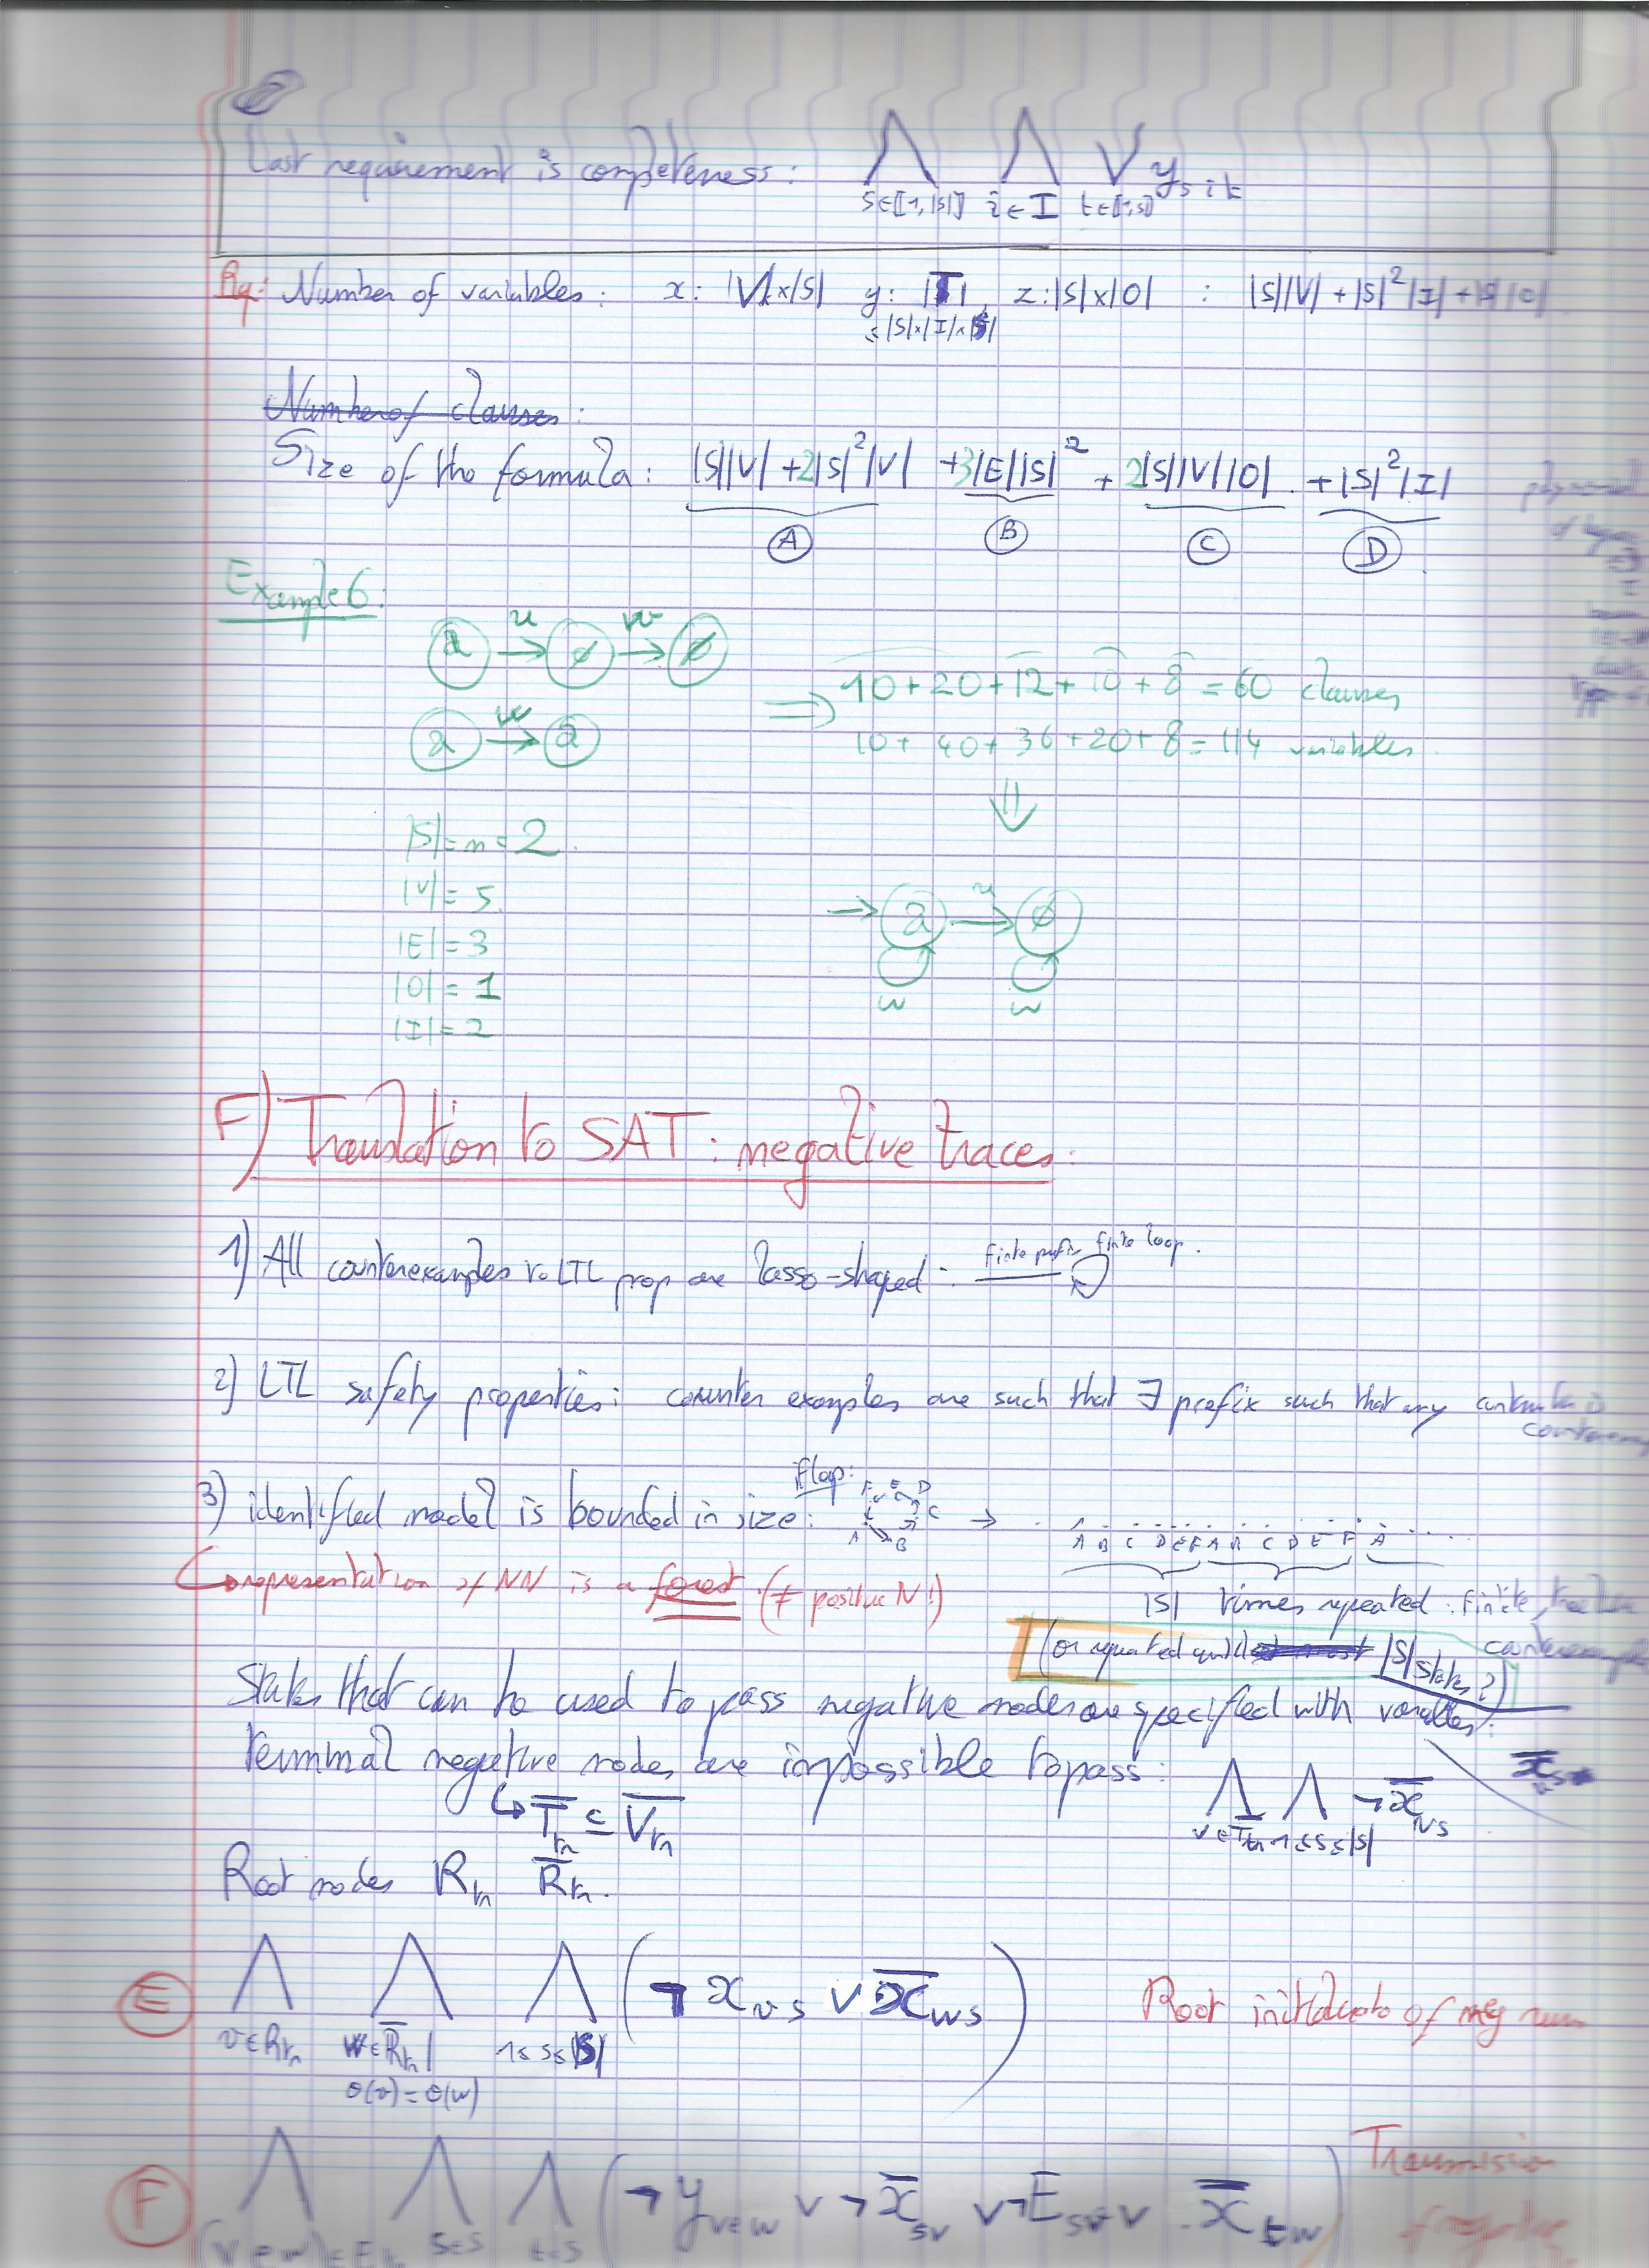 Last requirement is completeness: ⋀ s∈[1,|S|] ⋀ i∈I ⋁ t∈[1,S] y_sit
Rq: Number of variables: x: |V|x|S| y: |T| ≤|S|x|I|x|S|, z: |S|x|O| : |S||V| + |S|²|I| + |S||O|
Number of clauses:
Size of the formula: |S||V| + 2|S|²|V| + 3|E||S|² + 2|S||V||O| + |S|²|I|
A B C D
Example 6:
a u ∅ w ∅
⇒ 10 + 20 + 12 + 10 + 8 = 60 clauses
a w a
10 + 40 + 36 + 20 + 8 = 114 variables
⇓
|S| = n = 2
|V| = 5
→ a u ∅
|E| = 3
|O| = 1
w w
|I| = 2
F) Translation to SAT: negative traces:
1) All counterexamples to LTL prop are lasso-shaped: finite prefix finite loop.
2) LTL safety properties: counter examples are such that ∃ prefix such that any
3) identified model is bounded in size: A B C D E F → A B C D E F A B C D E F A ....
↳ representation of NN is a forest (≠ positive N!)
|S| times repeated: finite,
(or repeated until |S| states?)
States that can be used to pass negative nodes are specified with variables: x̄_vs
Terminal negative nodes are impossible to pass: ⋀ v∈T̄n ⋀ 1≤s≤|S| ¬x̄_vs
↳ T̄n ⊆ V̄n
Root nodes Rn R̄n.
E ⋀ v∈Rn ⋀ w∈R̄n | θ(v)=θ(w) ⋀ 1≤s≤|S| (¬x_vs ∨ x̄_ws) Root of neg
F ⋀ (v e w)∈En ⋀ s∈S ⋀ t∈S (¬y_vew ∨ ¬x̄_sv ∨ ¬E ∨ x̄_tw) Transmission of negative